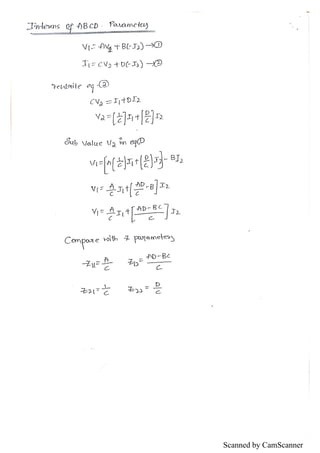 Interms of ABCD Parameters
V1 = AV2 + B(-I2) → ①
I1 = CV2 + D(-I2) → ②
rewrite eq ②
CV2 = I1 + DI2
V2 = [1/C] I1 + [D/C] I2
Sub value V2 in eq①
V1 = [A{[1/C] I1 + [D/C] I2}] - BI2
V1 = A/C I1 + [AD/C - B] I2
V1 = A/C I1 + [AD - BC / C] I2
Compare with Z parameters
Z11 = A/C Z12 = AD-BC / C
Z21 = 1/C Z22 = D/C
Scanned by CamScanner